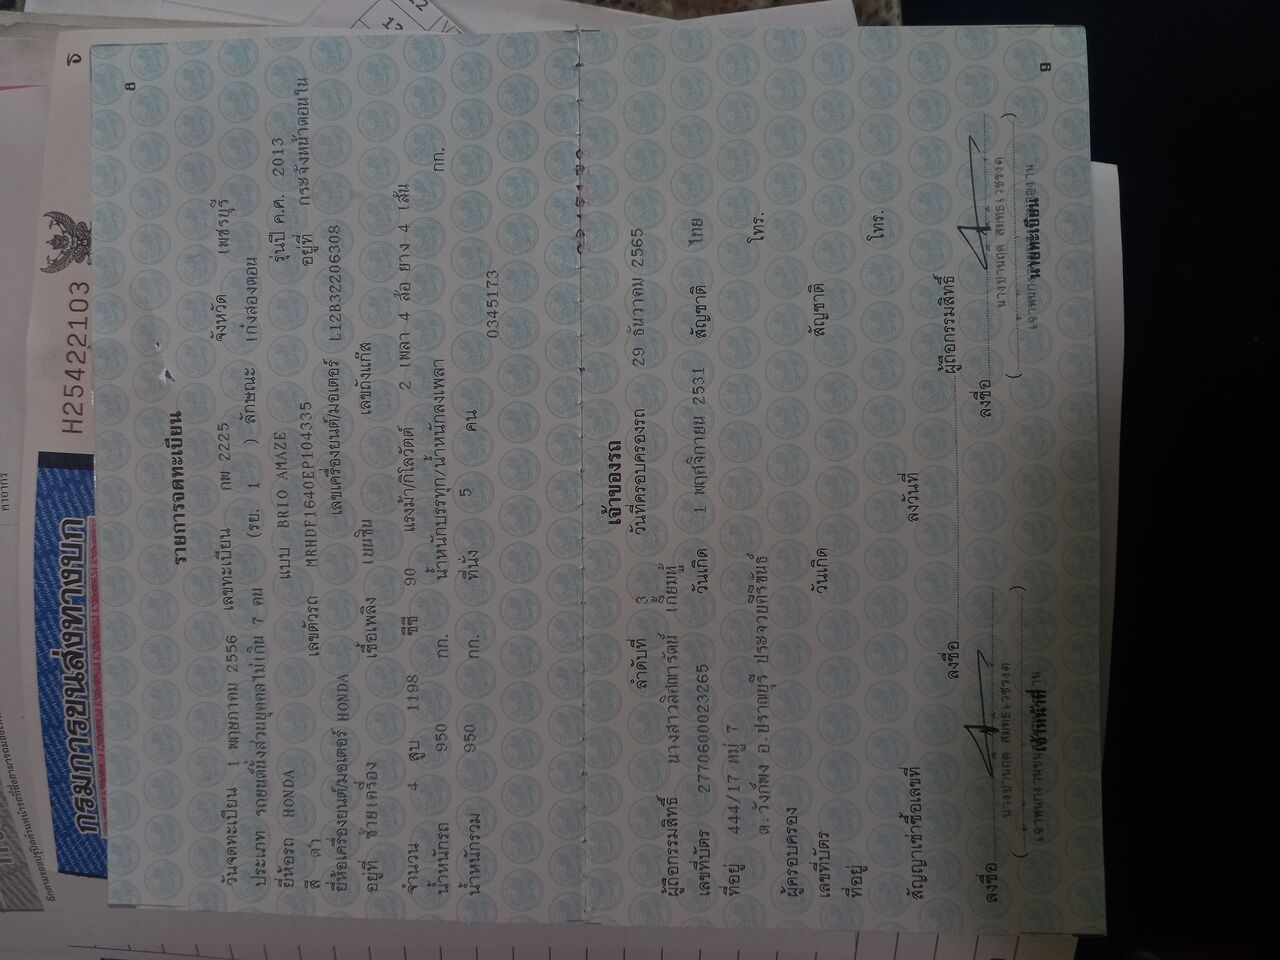 กรมการขนส่งทางบก
H25422103
8
รายการจดทะเบียน
วันจดทะเบียน 1 พฤษภาคม 2556 เลขทะเบียน กพ 2225 จังหวัด เพชรบุรี
ประเภท รถยนต์นั่งส่วนบุคคลไม่เกิน 7 คน (รย. 1 ) ลักษณะ เก๋งสองตอน
ยี่ห้อรถ HONDA แบบ BRIO AMAZE รุ่นปี ค.ศ. 2013
สี ดำ เลขตัวรถ MRHDF1640EP104335 อยู่ที่ กระจังหน้าตอนใน
ยี่ห้อเครื่องยนต์/มอเตอร์ HONDA เลขเครื่องยนต์/มอเตอร์ L12B32206308
อยู่ที่ ซ้ายเครื่อง เชื้อเพลิง เบนซิน เลขถังแก๊ส
จำนวน 4 สูบ 1198 ซีซี 90 แรงม้า/กิโลวัตต์ 2 เพลา 4 ล้อ ยาง 4 เส้น
น้ำหนักรถ 950 กก. น้ำหนักบรรทุก/น้ำหนักลงเพลา กก.
น้ำหนักรวม 950 กก. ที่นั่ง 5 คน
0345173
เจ้าของรถ
ลำดับที่ 3 วันที่ครอบครองรถ 29 ธันวาคม 2565
ผู้ถือกรรมสิทธิ์ นางสาวลิคณารัตน์
เลขที่บัตร 2770600023265 วันเกิด 1 พฤศจิกายน 2531 สัญชาติ ไทย
ที่อยู่ 444/17 หมู่ 7 โทร.
ต.วังก์พง อ.ปราณบุรี ประจวบคีรีขันธ์
ผู้ครอบครอง
เลขที่บัตร วันเกิด สัญชาติ
ที่อยู่ โทร.
สัญญาเช่าซื้อเลขที่ ลงวันที่
ลงชื่อ ผู้ถือกรรมสิทธิ์
ลงชื่อ ลงชื่อ
9